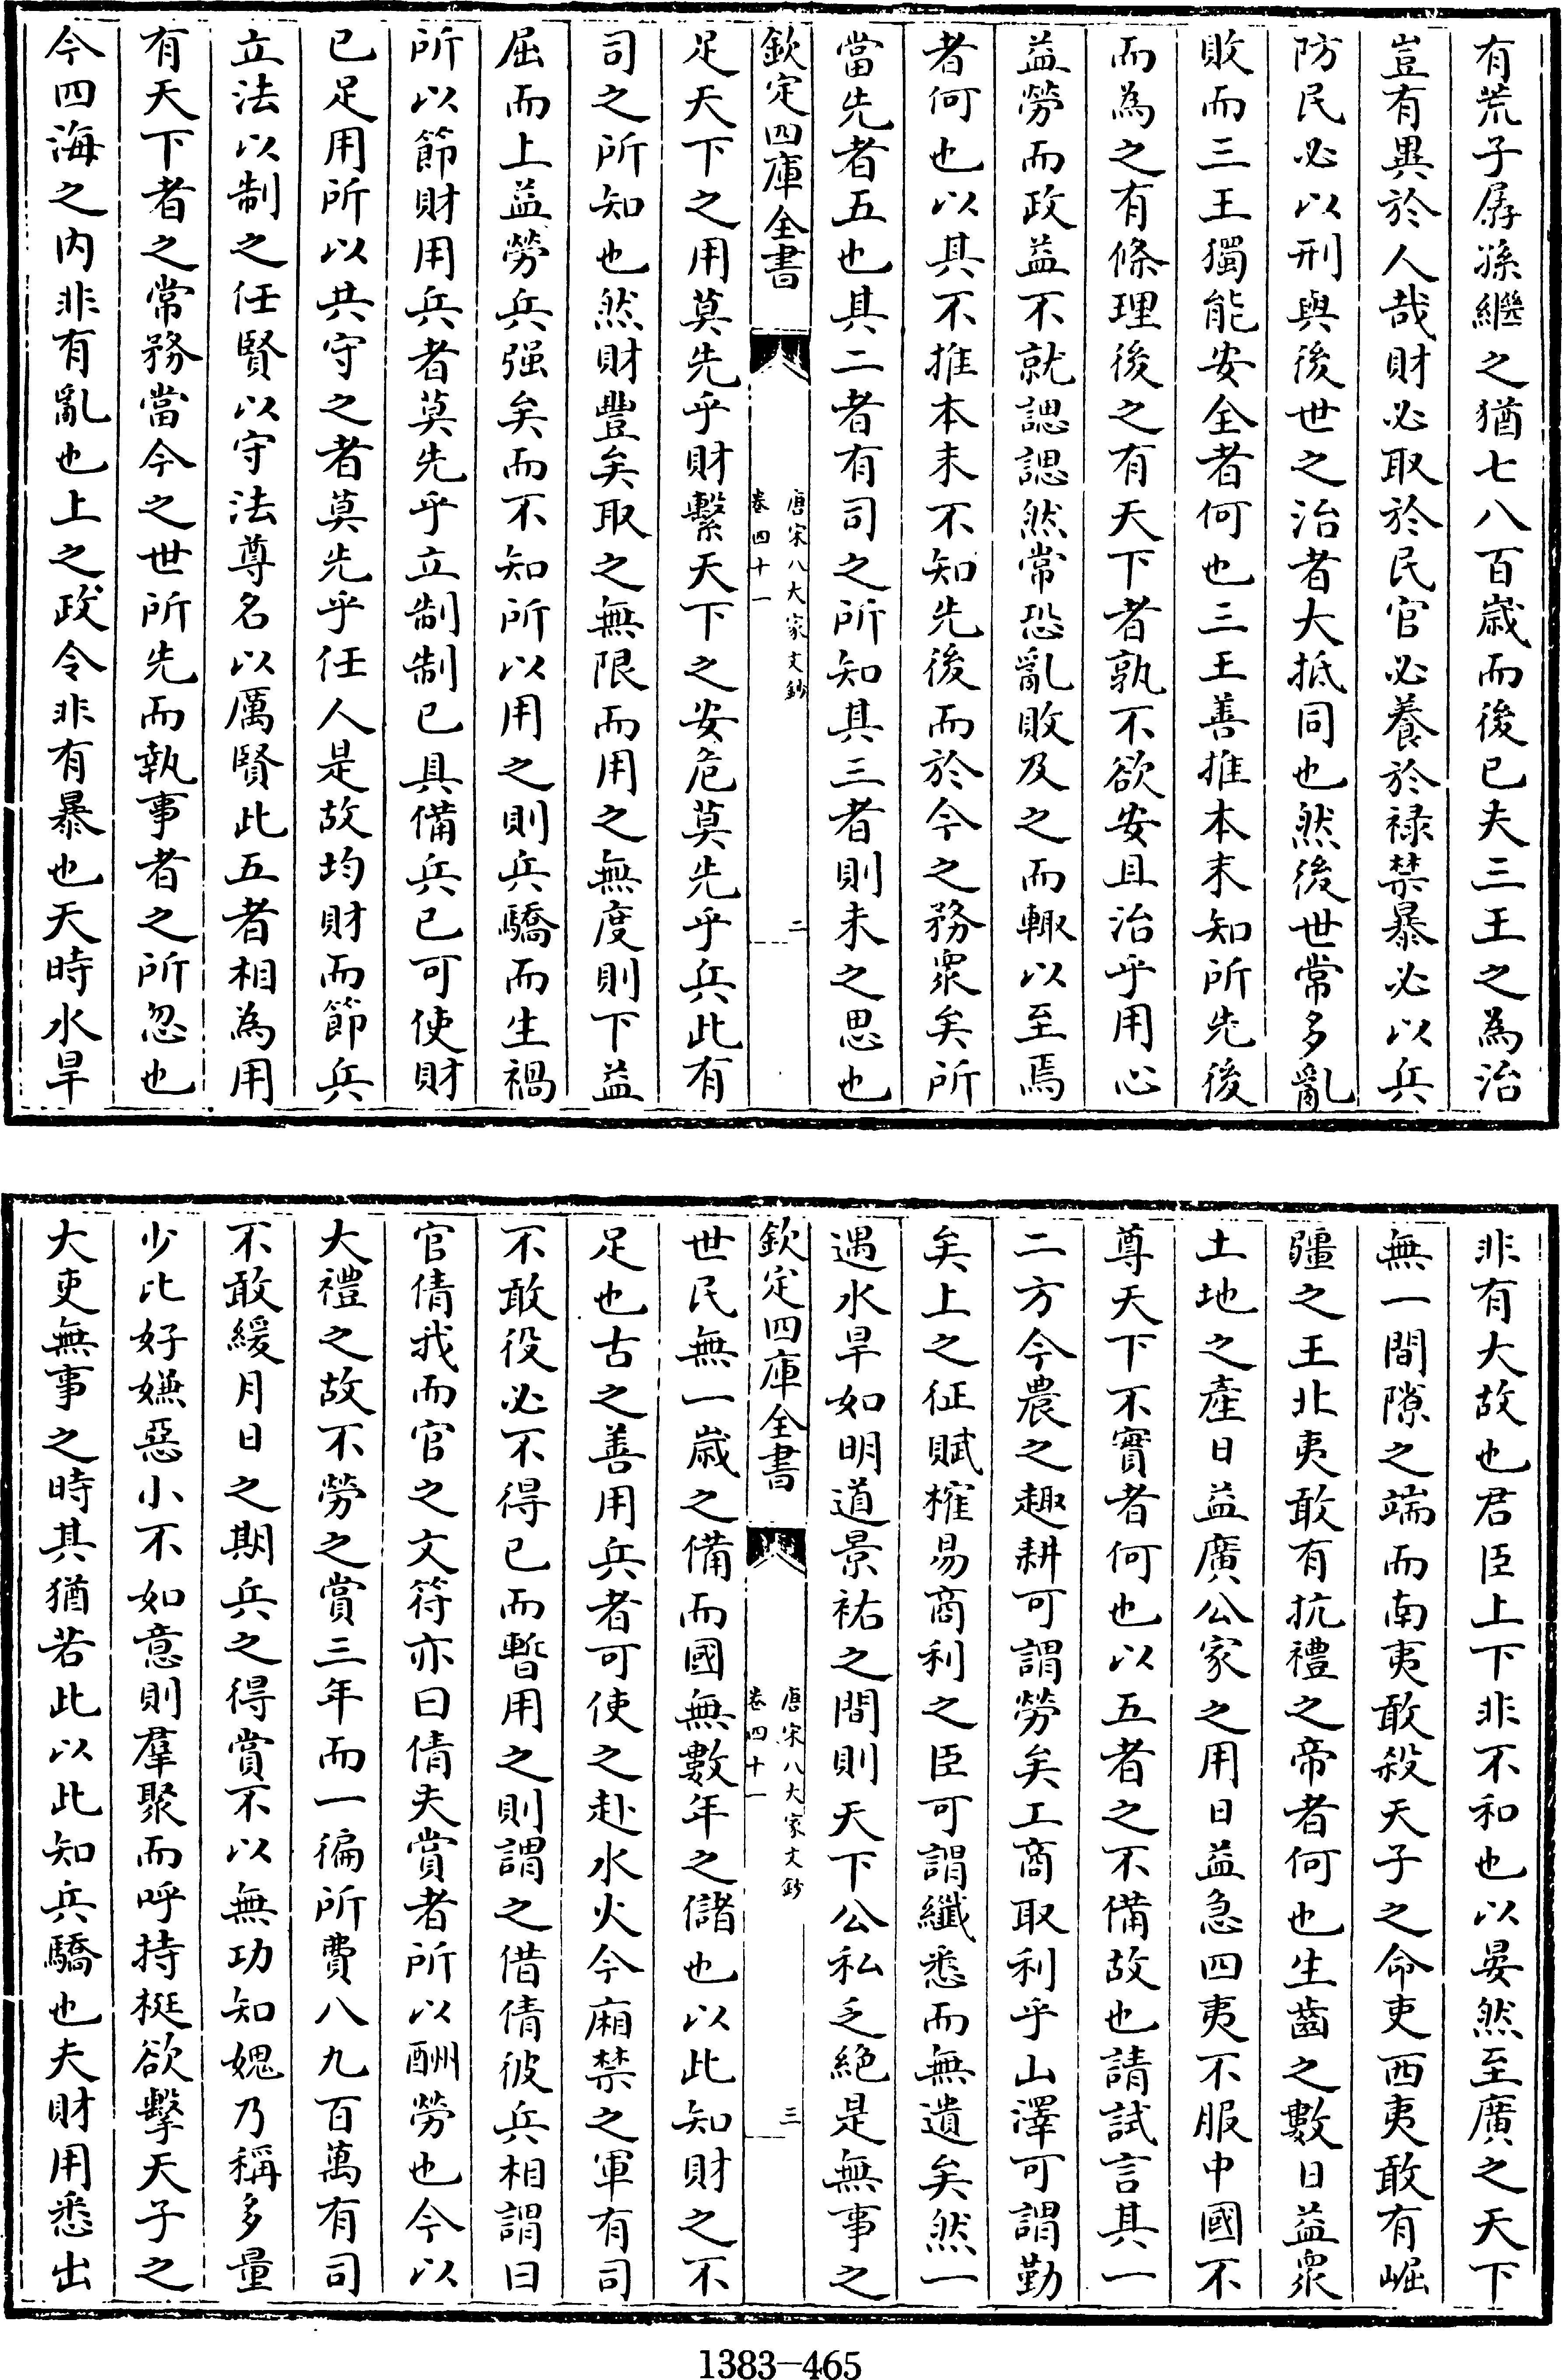 有荒子孱孫繼之猶七八百歲而後已夫三王之為治
豈有異於人哉財必取於民官必養於祿禁暴必以兵
防民必以刑與後世之治者大抵同也然後世常多亂
敗而三王獨能安全者何也三王善推本末知所先後
而為之有條理後之有天下者孰不欲安且治乎用心
益勞而政益不就諰諰然常恐亂敗及之而輙以至焉
者何也以其不推本末不知先後而於今之務衆矣所
當先者五也其二者有司之所知其三者則未之思也
欽定四庫全書
唐宋八大家文鈔
卷四十一
二
足天下之用莫先乎財繫天下之安危莫先乎兵此有
司之所知也然財豐矣取之無限而用之無度則下益
屈而上益勞兵强矣而不知所以用之則兵驕而生禍
所以節財用兵者莫先乎立制制已具備兵已可使財
已足用所以共守之者莫先乎任人是故均財而節兵
立法以制之任賢以守法尊名以厲賢此五者相為用
有天下者之常務當今之世所先而執事者之所忽也
今四海之内非有亂也上之政令非有暴也天時水旱
非有大故也君臣上下非不和也以晏然至廣之天下
無一間隙之端而南夷敢殺天子之命吏西夷敢有崛
疆之王北夷敢有抗禮之帝者何也生齒之數日益衆
土地之產日益廣公家之用日益急四夷不服中國不
尊天下不實者何也以五者之不備故也請試言其一
二方今農之趣耕可謂勞矣工商取利乎山澤可謂勤
矣上之征賦榷易商利之臣可謂纖悉而無遺矣然一
遇水旱如明道景祐之間則天下公私乏絶是無事之
欽定四庫全書
唐宋八大家文鈔
卷四十一
三
世民無一歲之備而國無數年之儲也以此知財之不
足也古之善用兵者可使之赴水火今廂禁之軍有司
不敢役必不得已而暫用之則謂之借倩彼兵相謂曰
官倩我而官之文符亦曰倩夫賞者所以酬勞也今以
大禮之故不勞之賞三年而一徧所費八九百萬有司
不敢緩月日之期兵之得賞不以無功知媿乃稱多量
少比好嫌惡小不如意則羣聚而呼持梃欲擊天子之
大吏無事之時其猶若此以此知兵驕也夫財用悉出
1383—465